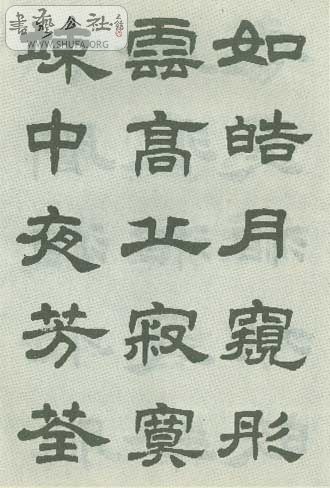 如皓月窺彤
雲高丘寂寞
竦中夜芳荃
書藝公社
WWW.SHUFA.ORG